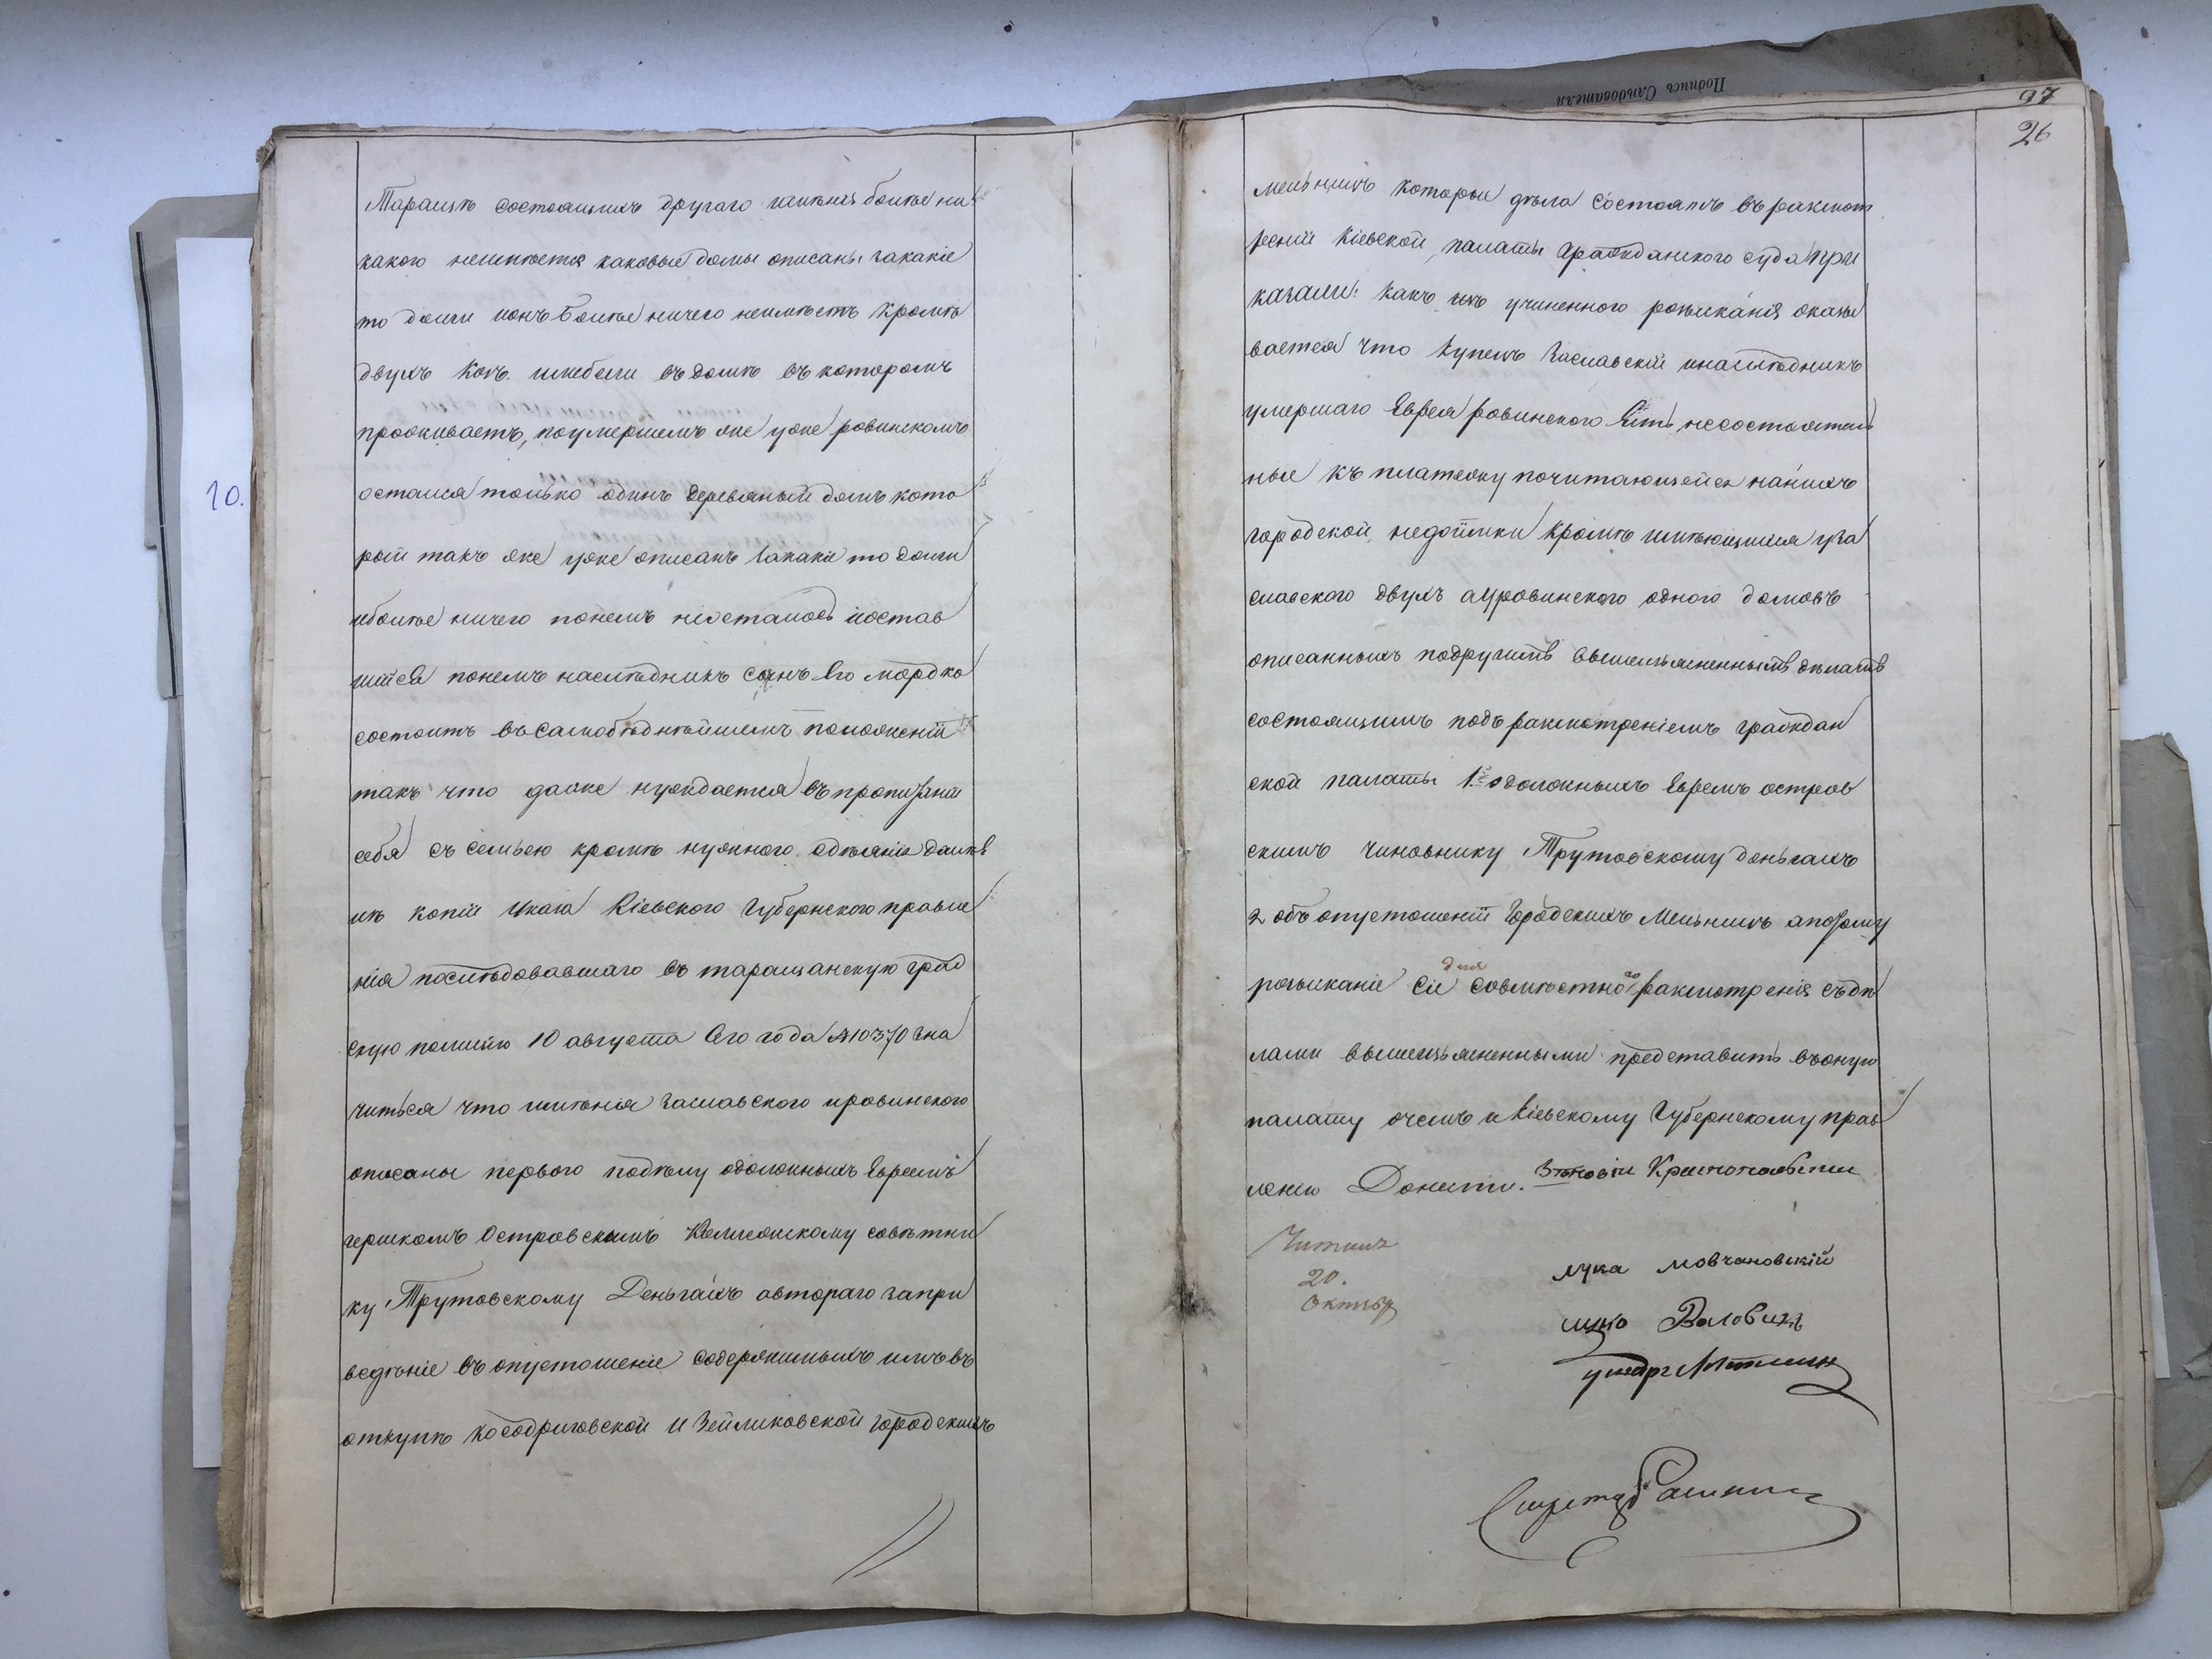 Подпись Слѣдователя
10.
Таращѣ состоящихъ другаго имѣнія болѣе ни
какого неимѣется каковыи домы описаны закакіе
то долги ионъ болѣе ничего неимѣетъ кромѣ
двухъ мебели въ домѣ въ которомъ
проживаетъ, поумершемъ же уже ровинскомъ
остался только одинъ деревяный домъ кото
рый такъ же уже описанъ закакіе то долги
иболѣе ничего понемъ неосталось иостав
шійся понемъ наслѣдникъ сынъ его мордко
состоитъ въ самобѣднѣйшемъ положеніи
такъ что даже нуждается въ пропитаніи
себя съ семьею кромѣ нужного одѣянія далѣе
изъ копіи указа Кіевского Губернского правле
нія послѣдовавшаго въ таращанскую град
скую полицію 10 августа сего года №10370 зна
читься что имѣнія Заславского ировинского
описаны первого подѣлу одолжныхъ Евреемъ
гершкомъ Островскимъ Коллежскому совѣтни
ку Трутовскому Деньгахъ авторaго запри
ведѣніе въ опустошеніе содержимыхъ имъ въ
откупѣ Косодриговской и Зейликовской городскихъ
97
26
мельницъ которыи дѣла состоятъ въ разсмот
реніи Кіевской палаты Гражданского суда при
казали: какъ изъ учиненного розысканія оказы
вается что купецъ Заславскій инаслѣдникъ
умершаго Еврея ровинского несостоятель
ные къ платежу почитающейся нанихъ
городской недоимки кромѣ имѣющихся уЗа
славского двухъ ауровинского одного домовъ
описанныхъ подручимъ вышеизъясненнымъ дѣламъ
состоящимъ подъ разсмотреніемъ граждан
ской палаты 1е одолжныхъ Евреемъ остров
скимъ чиновнику Трутовскому деньгахъ
2 объ опустошеніи Городскихъ Мельницъ апотому
розысканіе сіе для совмѣстного разсмотренія съ дѣ
лами вышеизъясненными представить въ оную
палату очемъ и Кіевскому Губернскому прав
ленію Донести.
Лука Мовчановскій
Читалъ
20.
Октяб